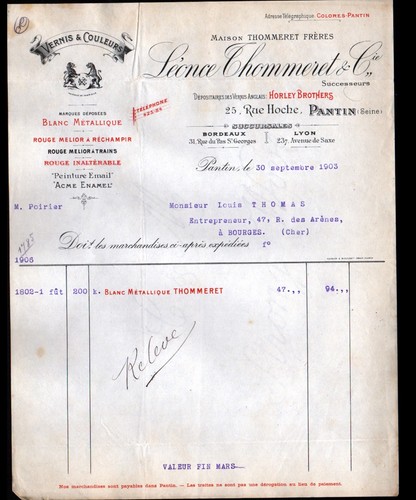 Adresse Télégraphique: COLORES-PANTIN
VERNIS & COULEURS
MAISON THOMMERET FRÈRES
Léonce Thommeret & Cie
Successeurs
MARQUES DÉPOSÉES
BLANC MÉTALLIQUE
ROUGE MELIOR À RÉCHAMPIR
ROUGE MELIOR À TRAINS
ROUGE INALTÉRABLE
"Peinture Email"
"ACME ENAMEL"
TÉLÉPHONE
DÉPOSITAIRES DES VERNIS ANGLAIS: HORLEY BROTHERS
25, Rue Hoche, PANTIN (Seine)
SUCCURSALES
BORDEAUX
31, Rue du Pas St Georges
LYON
237, Avenue de Saxe
Pantin, le 30 septembre 1903
M. Poirier
Monsieur Louis THOMAS
Entrepreneur, 47, R. des Arènes,
à BOURGES. (Cher)
Doit les marchandises ci-après expédiées fo
1906
1802-1 fût 200 k. BLANC MÉTALLIQUE THOMMERET 47.,, 94.,,
VALEUR FIN MARS
Nos marchandises sont payables dans Pantin. - Les traites ne sont pas une dérogation au lieu de paiement.